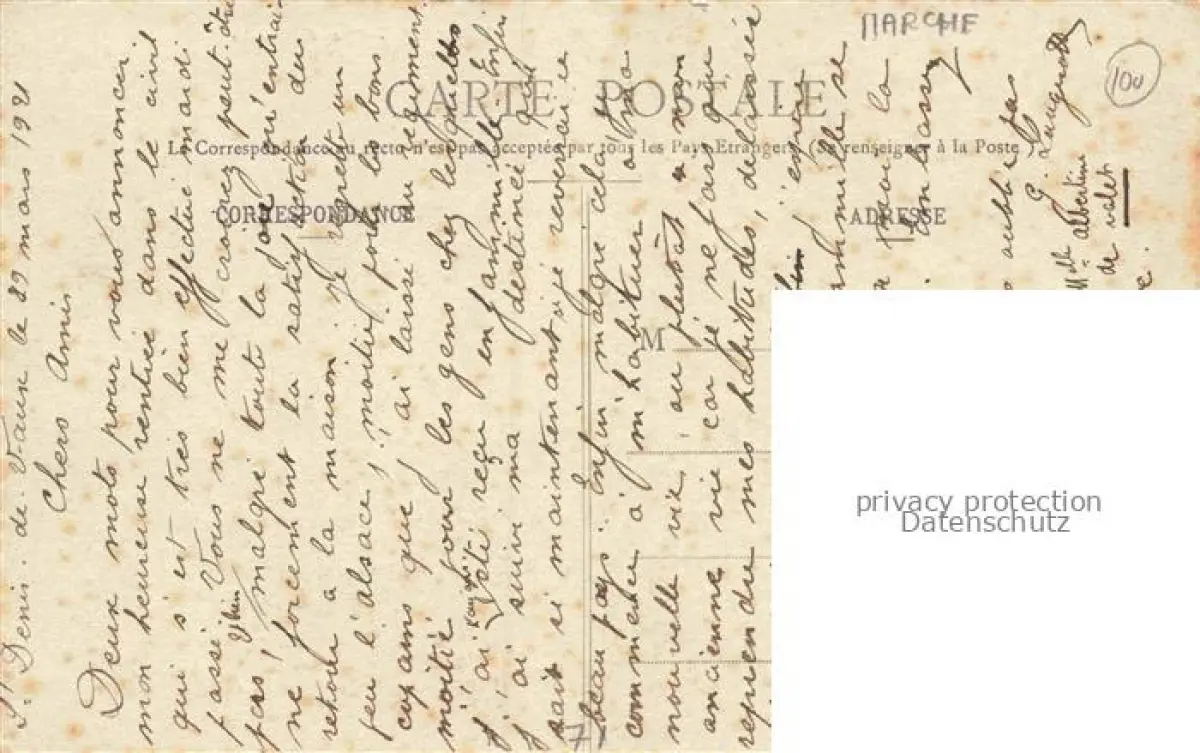 MARCHE
100
CARTE POSTALE
La Correspondance au recto n'est pas acceptée par tous les Pays Etrangers. (Se renseigner à la Poste
CORRESPONDANCE
ADRESSE
M
St Denis. de. Vaux le 29 mars 1921
Chers Amis
Deux mots pour vous annoncer
mon heureuse rentrée dans le civil
qui s'est très bien effectué mardi
passé Vous ne me croirez peut-être
pas, malgré tout la joie
ne forcément la satisfaction du
retour à la maison je regrette un
peu l'alsace, moitié pour les bons
copains que j'ai laissé au régiment
moitié pour les gens chez lequels
j'ai été reçu en famille. Enfin
j'ai suivi ma destinée qui
sait si maintenant je reverrai ce
beau pays. Enfin malgré cela il
commencer à m'habituer à ma
nouvelle vie ou plutôt a mon
ancienne vie car je ne fais que
reprendre mes habitudes, delaissée
j'espère
famille se
pour la
oublie pas
G.
Mlle albertine
de valet
privacy protection
Datenschutz